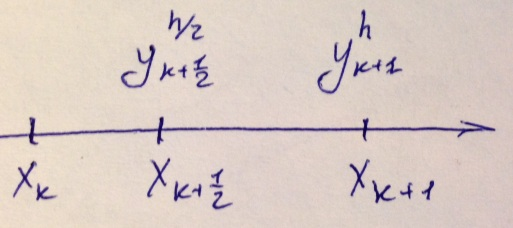 y_{k+\frac{1}{2}}^{h/2} y_{k+1}^{h}
x_k x_{k+\frac{1}{2}} x_{k+1}